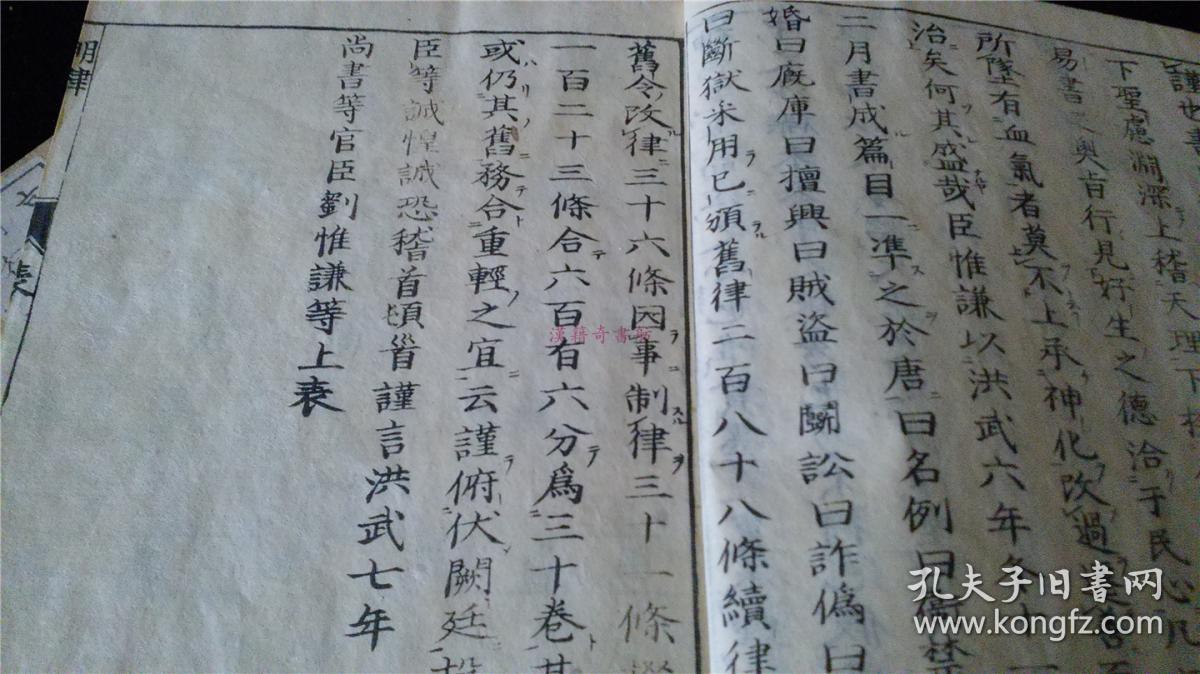 下聖慮淵深上稽天理下
易書之奧旨行見好生之德洽于民心凡
所墜有血氣者莫不上承神化改過
治矣何其盛哉臣惟謙以洪武六年冬十一
二月書成篇目一準之於唐曰名例曰衛禁
婚曰廐庫曰擅興曰賊盜曰鬭訟曰詐僞曰
曰斷獄采用已頒舊律二百八十八條續律
舊令改律三十六條因事制律三十一條
一百二十三條合六百有六分爲三十卷其
或仍其舊務合重輕之宜云謹俯伏闕廷
臣等誠惶誠恐稽首頓首謹言洪武七年
尚書等官臣劉惟謙等上表
明律
表
漢籍奇書
孔夫子旧书网
www.kongfz.com